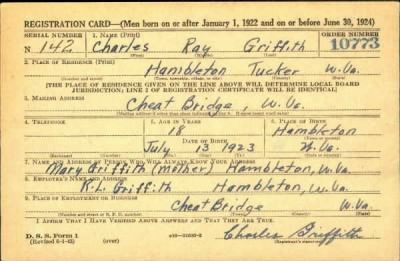 REGISTRATION CARD—(Men born on or after January 1, 1922 and on or before June 30, 1924)
SERIAL NUMBER 1. NAME (Print) ORDER NUMBER
N 142 Charles Ray Griffith 10773
2. PLACE OF RESIDENCE (Print)
Hambleton Tucker W.Va.
[THE PLACE OF RESIDENCE GIVEN ON THE LINE ABOVE WILL DETERMINE LOCAL BOARD
JURISDICTION; LINE 2 OF REGISTRATION CERTIFICATE WILL BE IDENTICAL]
3. MAILING ADDRESS
Cheat Bridge, W.Va.
4. TELEPHONE 5. AGE IN YEARS 6. PLACE OF BIRTH
18 Hambleton
DATE OF BIRTH
July 13 1923 W.Va.
7. NAME AND ADDRESS OF PERSON WHO WILL ALWAYS KNOW YOUR ADDRESS
Mary Griffith (Mother) Hambleton, W.Va.
8. EMPLOYER'S NAME AND ADDRESS
R.L. Griffith Hambleton, W.Va.
9. PLACE OF EMPLOYMENT OR BUSINESS
Cheat Bridge W.Va.
I AFFIRM THAT I HAVE VERIFIED ABOVE ANSWERS AND THAT THEY ARE TRUE.
D. S. S. Form 1
(over) Charles Griffith